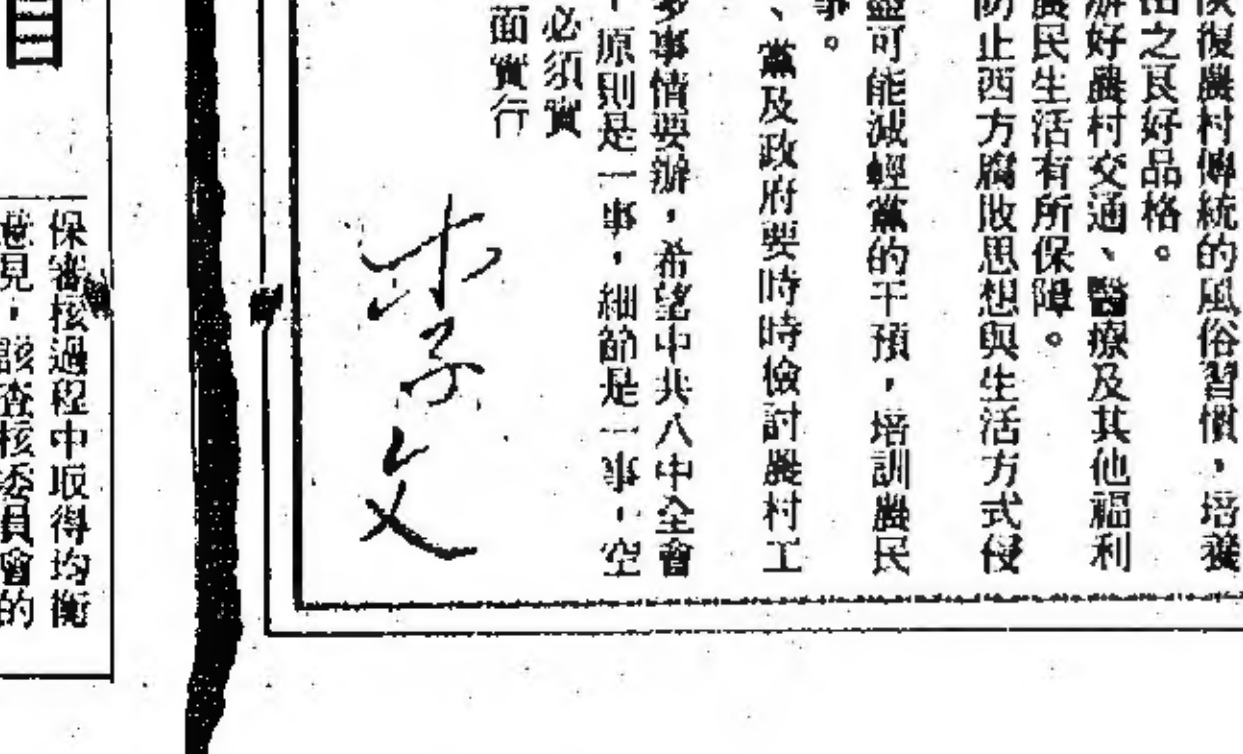 恢復農村傳統的風俗習慣，培養
出之良好品格。
游好農村交通、醫療及其他福利
農民生活有所保障。
防止西方腐敗思想與生活方式侵
盡可能減輕黨的干預，培訓農民
事。
、黨及政府要時時檢討農村工
多事情要辦，希望中共八中全會
，原則是一事，細節是一事，空
必須實
面實行
李文
目
保審核過程中取得均衡
意見，該查核委員會的